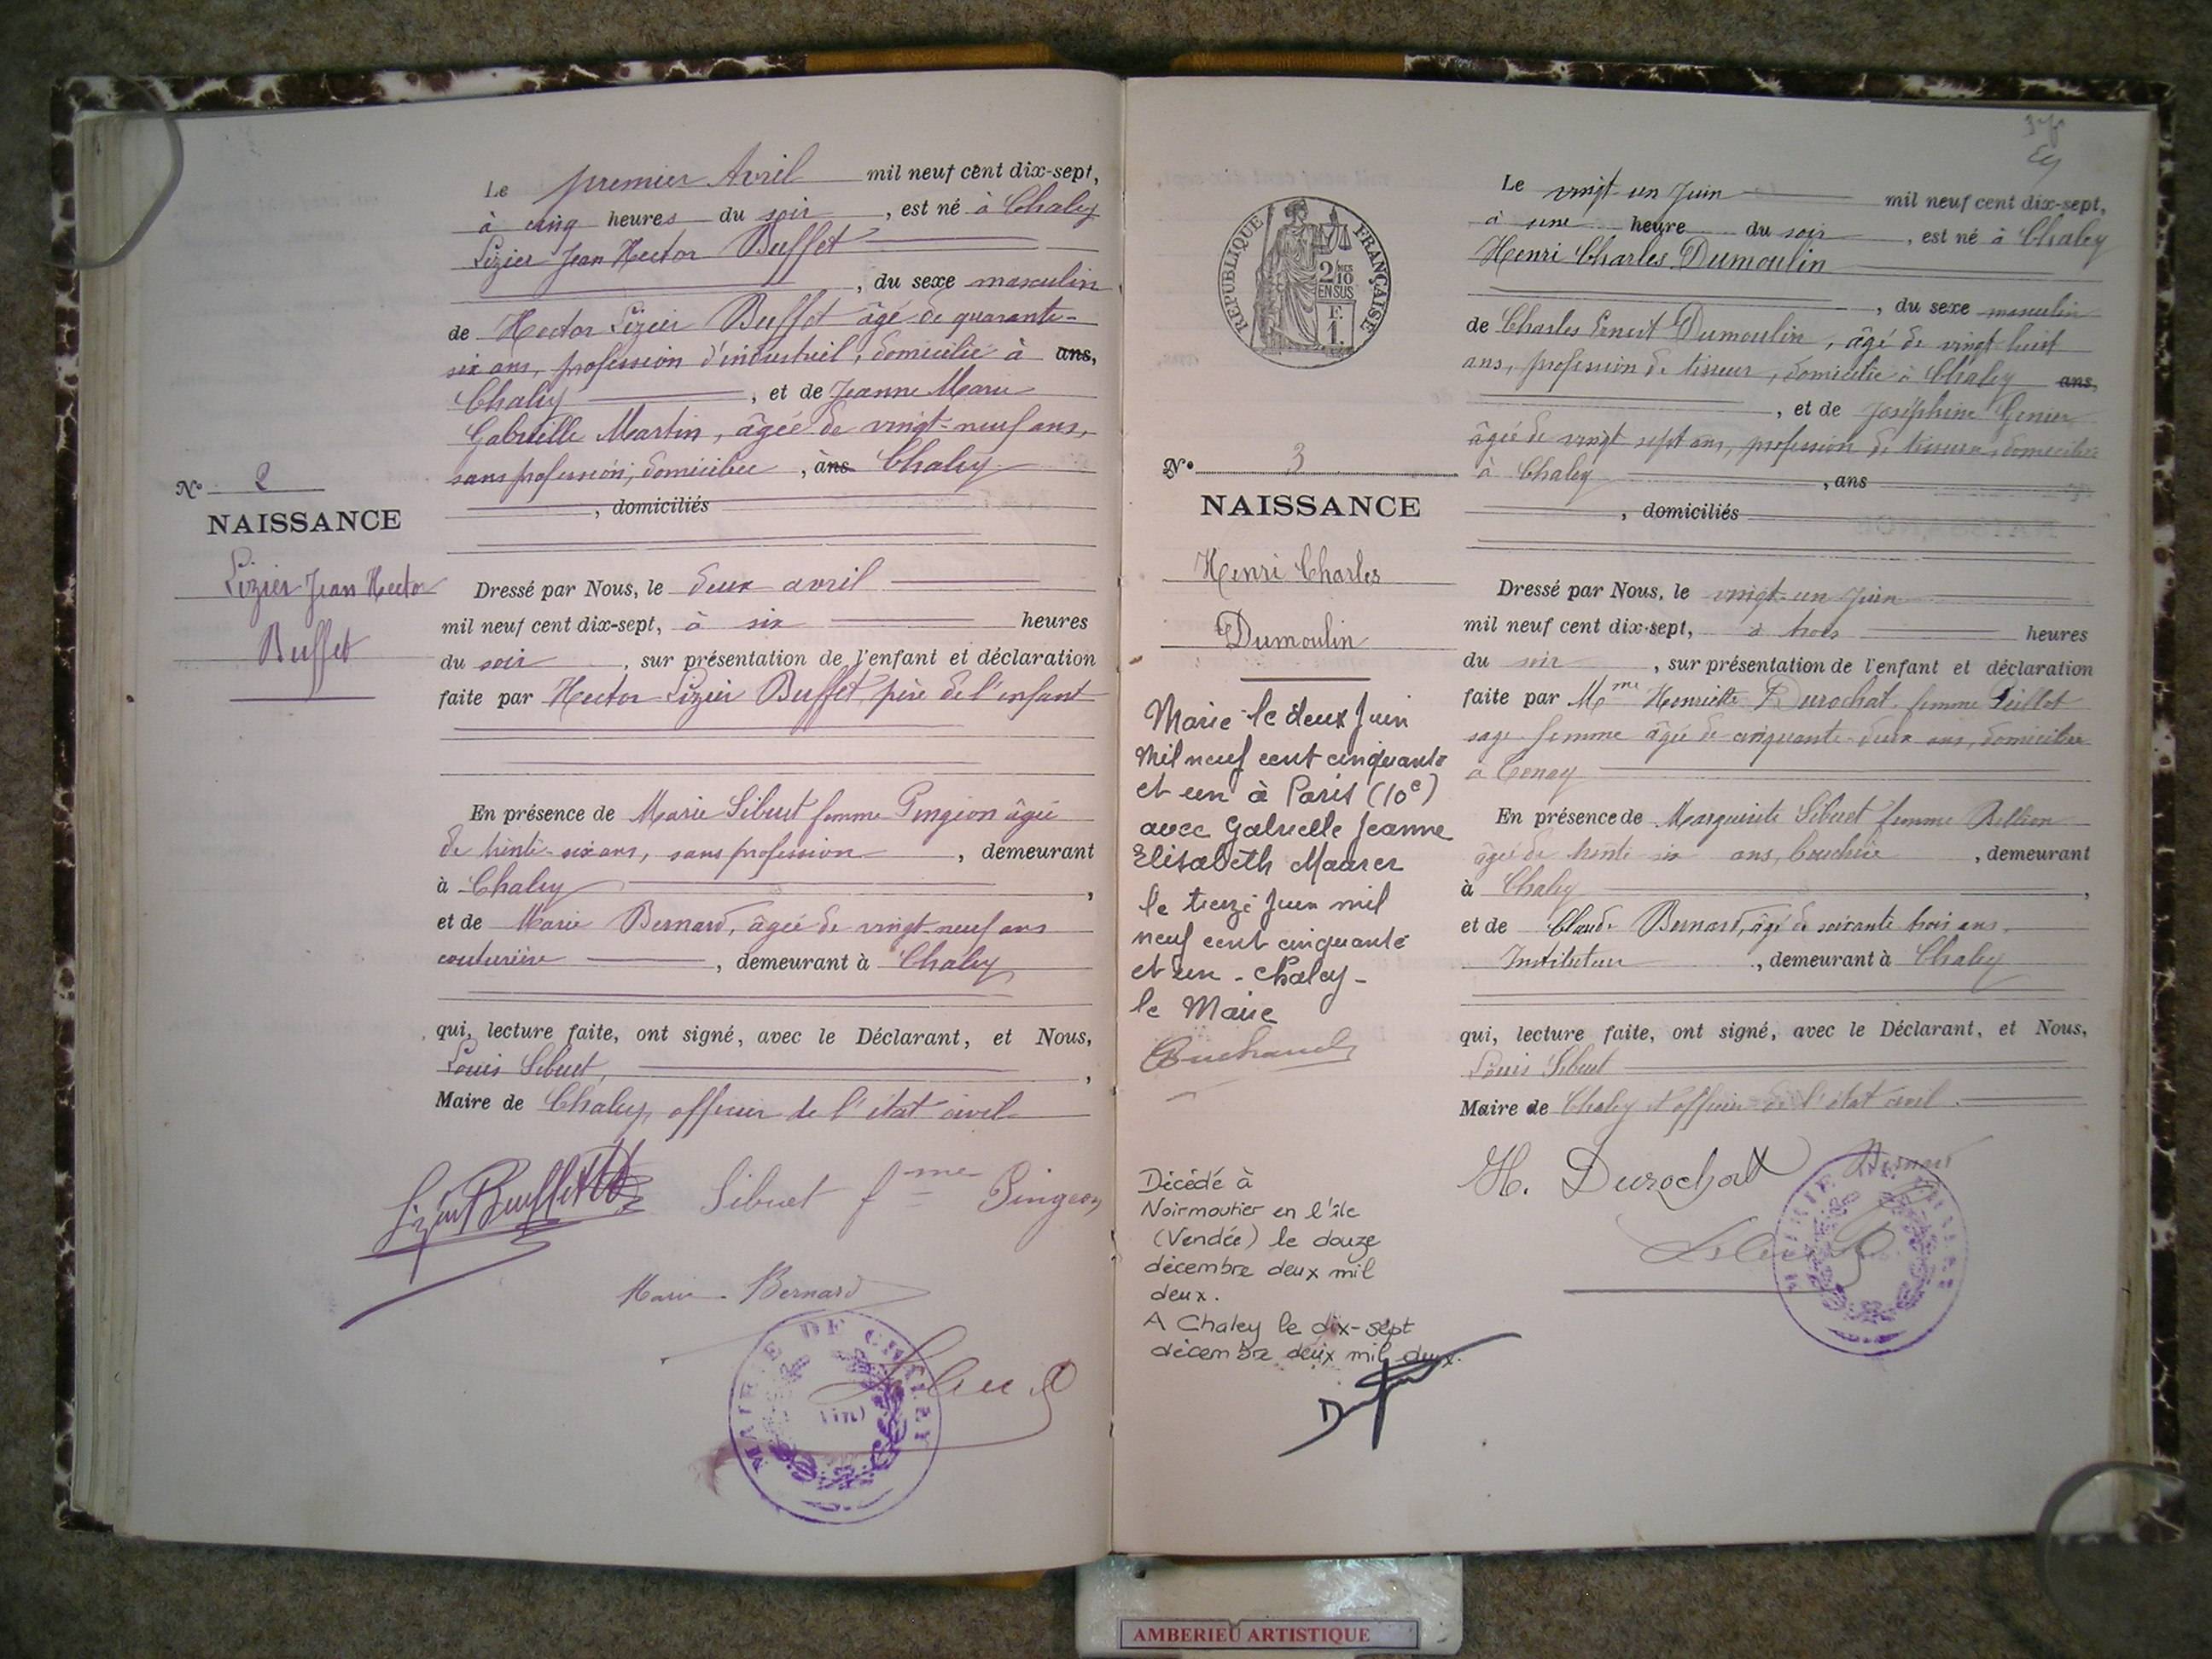 Le premier Avril mil neuf cent dix-sept,
à cinq heures du soir, est né à Chaley
Lizier Jean Hector Buffet
, du sexe masculin
de Hector Lizier Buffet âgé de quarante-
six ans, profession d'industriel, domicilié à ans,
Chaley, et de Jeanne Marie
Gabrielle Martin, âgée de vingt-neuf ans,
sans profession, domiciliée, ans Chaley
, domiciliés
No 2
NAISSANCE
Lizier Jean Hector
Buffet
Dressé par Nous, le deux avril
mil neuf cent dix-sept, à six heures
du soir, sur présentation de l'enfant et déclaration
faite par Hector Lizier Buffet, père de l'enfant
En présence de Marie Sibuet femme Pingeon âgée
de trente-six ans, sans profession, demeurant
à Chaley,
et de Marie Bernard, âgée de vingt-neuf ans
couturière, demeurant à Chaley
qui, lecture faite, ont signé, avec le Déclarant, et Nous,
Louis Sibuet,
Maire de Chaley, officier de l'état civil
Lizier Buffet
Sibuet fme Pingeon
Marie Bernard
MAIRIE DE CHALEY
(Ain)
Sibuet
REPUBLIQUE FRANÇAISE
2/10
EN SUS
F.
1.
Le vingt-un Juin mil neuf cent dix-sept,
à une heure du soir, est né à Chaley
Henri Charles Dumoulin
, du sexe masculin
de Charles Ernest Dumoulin, âgé de vingt huit
ans, profession de tisseur, domicilié à Chaley ans,
, et de Joséphine Genier
âgée de vingt sept ans, profession de tisseuse, domiciliée
à Chaley, ans
, domiciliés
No 3
NAISSANCE
Henri Charles
Dumoulin
Marié le deux Juin
mil neuf cent cinquante
et un à Paris (10e)
avec Gabrielle Jeanne
Elisabeth Maurer
le treize Juin mil
neuf cent cinquante
et un - Chaley -
le Maire
Décédé à
Noirmoutier en l'île
(Vendée) le douze
décembre deux mil
deux.
A Chaley le dix-sept
décembre deux mil deux.
Dressé par Nous, le vingt-un Juin
mil neuf cent dix-sept, à trois heures
du soir, sur présentation de l'enfant et déclaration
faite par Mme Henriette Durochat femme Peillot
sage-femme âgée de cinquante-deux ans, domiciliée
à Tenay
En présence de Marguerite Sibuet femme Billion
âgée de trente six ans, bouchère, demeurant
à Chaley,
et de Claude Bernard, âgé de soixante trois ans,
Instituteur, demeurant à Chaley
qui, lecture faite, ont signé, avec le Déclarant, et Nous,
Louis Sibuet
Maire de Chaley et officier de l'état civil.
H. Durochat
Bernard
Sibuet
AMBERIEU ARTISTIQUE